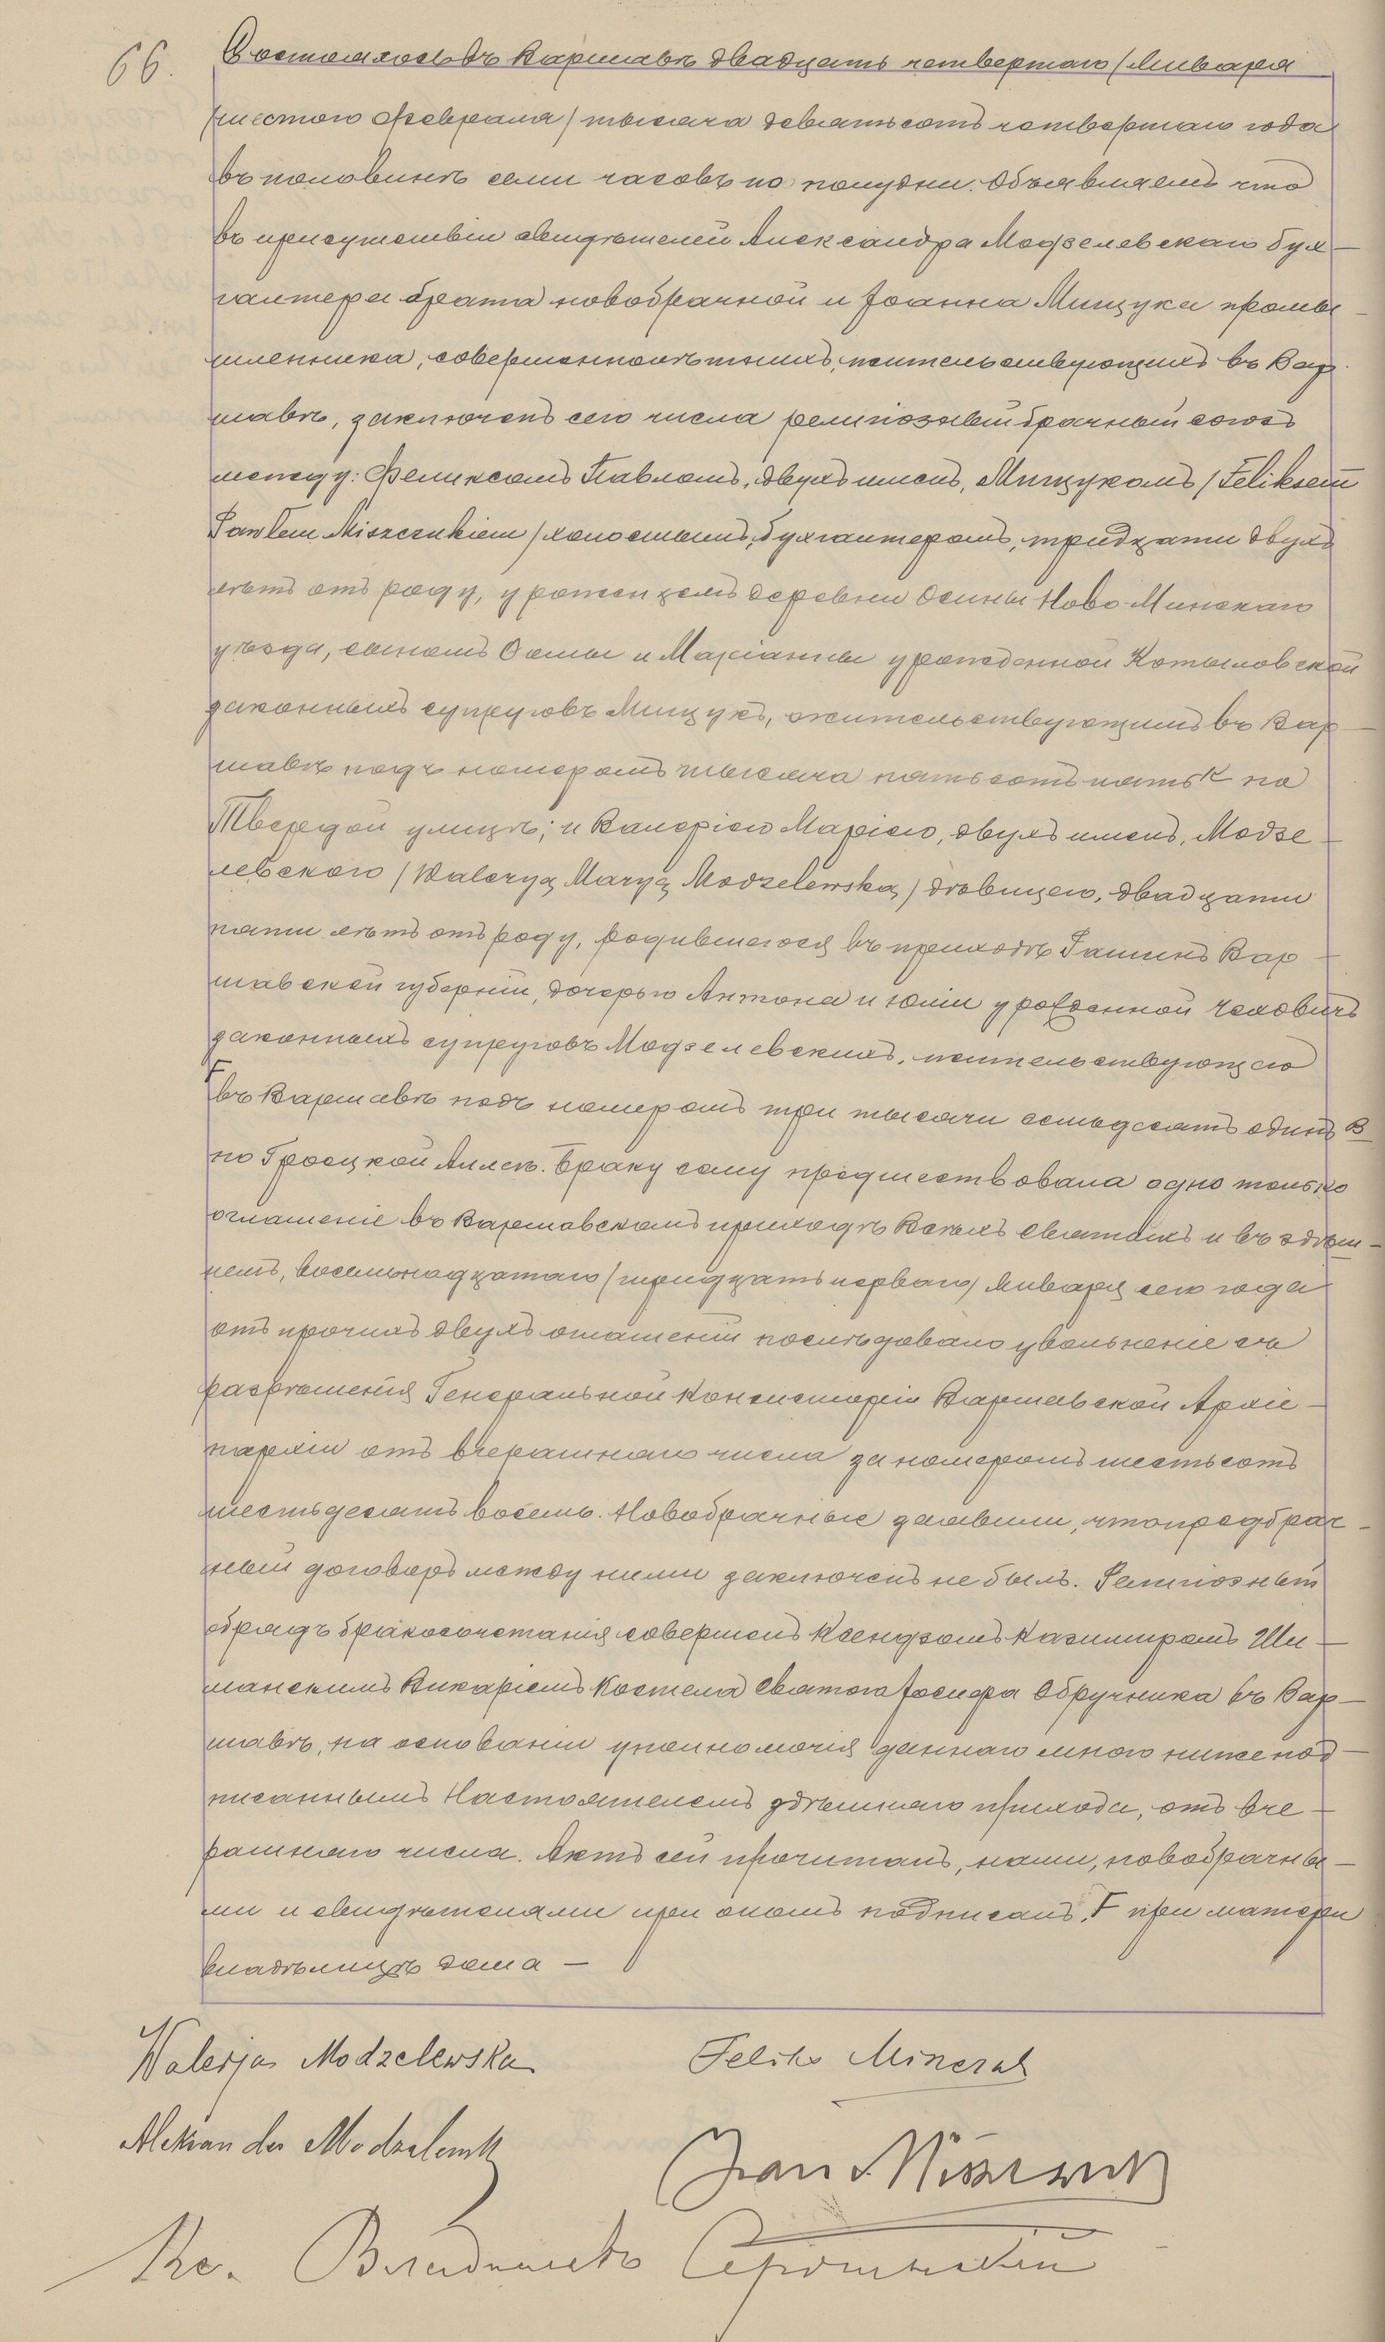 66.
Состоялось въ Варшавѣ двадцать четвертаго /Января
/шестого Февраля/ тысяча девятьсотъ четвертаго года
въ половинѣ семи часовъ по полудни. Объявляемъ что
въ присутствіи свидѣтелей Александра Модзелевскаго бух-
галтера брата новобрачной и Іоанна Мищука промы-
шленника, совершеннолѣтнихъ, жительствующихъ въ Вар-
шавѣ, заключенъ сего числа религіозный брачный союзъ
между: Феликсомъ Павломъ, двухъ именъ, Мищукомъ /Feliksem
Pawłem Miszczukiem/ холостымъ, бухгалтеромъ, тридцати двухъ
лѣтъ отъ роду, урожденцемъ деревни Осины Ново-Минскаго
уѣзда, сыномъ Ѳомы и Маріанны урожденной Котыловской
законныхъ супруговъ Мищукъ, жительствующимъ въ Вар-
шавѣ подъ номеромъ тысяча пятьсотъ пять К по
Твердой улицѣ; и Валеріею Маріею, двухъ именъ, Модзе-
левскою /Waleryą Maryą Modzelewską/ дѣвицею, двадцати
пяти лѣтъ отъ роду, родившеюся въ приходѣ Вар-
шавской губерніи, дочерью Антона и Юліи урожденной Чеховичъ
законныхъ супруговъ Модзелевскихъ, жительствующею
F въ Варшавѣ подъ номеромъ три тысячи семьдесятъ одинъ В
по Гроецкой Аллеѣ. Браку сему предшествовала одно только
оглашеніе въ Варшавскомъ приходѣ Всѣхъ Святыхъ и въ здѣш-
немъ, восемьнадцатаго /тридцать перваго/ Января сего года
отъ прочихъ двухъ оглашеній послѣдовало увольненіе съ
разрѣшенія Генеральной Консисторіи Варшавской Архіе-
пархіи отъ вчерашняго числа за номеромъ шестьсотъ
шестьдесятъ восемь. Новобрачные заявили, что предбрач-
ный договоръ между ними заключенъ не былъ. Религіозный
обрядъ бракосочетанія совершенъ Ксендзомъ Казимиромъ Ши-
манскимъ Викаріемъ Костела Святого Іосифа Обручника въ Вар-
шавѣ, на основаніи уполномочія даннаго мною нижепод-
писаннымъ Настоятелемъ здѣшняго прихода, отъ вче-
рашняго числа. Актъ сей прочитанъ, нами, новобрачны-
ми и свидѣтелями при ономъ подписанъ. F при матери
владѣлицѣ дома —
Walerja Modzelewska Feliks Miszczuk
Aleksander Modzelewski Jan Miszczuk
Кс. Владиславъ